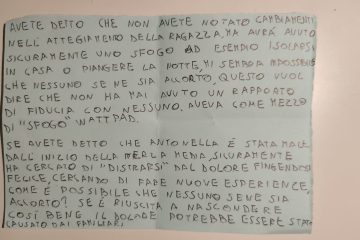 AVETE DETTO CHE NON AVETE NOTATO CAMBIAMENTI
NELL'ATTEGIAMENTO DELLA RAGAZZA, MA AVRÁ AVUTO
SICURAMENTE UNO SFOGO AD ESEMPIO ISOLARSI
IN CASA O PIANGERE LA NOTTE, MI SEMBRA IMPOSSIBILE
CHE NESSUNO SE NE SIA ACCORTO, QUESTO VUOL
DIRE CHE NON HA MAI AVUTO UN RAPPORTO
DI FIDUCIA CON NESSUNO. AVEVA COME MEZZO
DI "SFOGO" WATTPAD.
SE AVETE DETTO CHE ANTONELLA É STATA MALE
DALL'INIZIO DELLA MERLA MEDIA, SICURAMENTE
HA CERCATO DI "DISTRARSI" DAL DOLORE FINGENDOSI
FELICE, CERCANDO DI FARE NUOVE ESPERIENZE,
COME É POSSIBILE CHE NESSUNO SENE SIA
ACCORTO? SE É RIUSCITA A NASCONDERE
COSÍ BENE IL DOLORE POTREBBE ESSERE STATA
CAUSATO DAI FAMILIARI